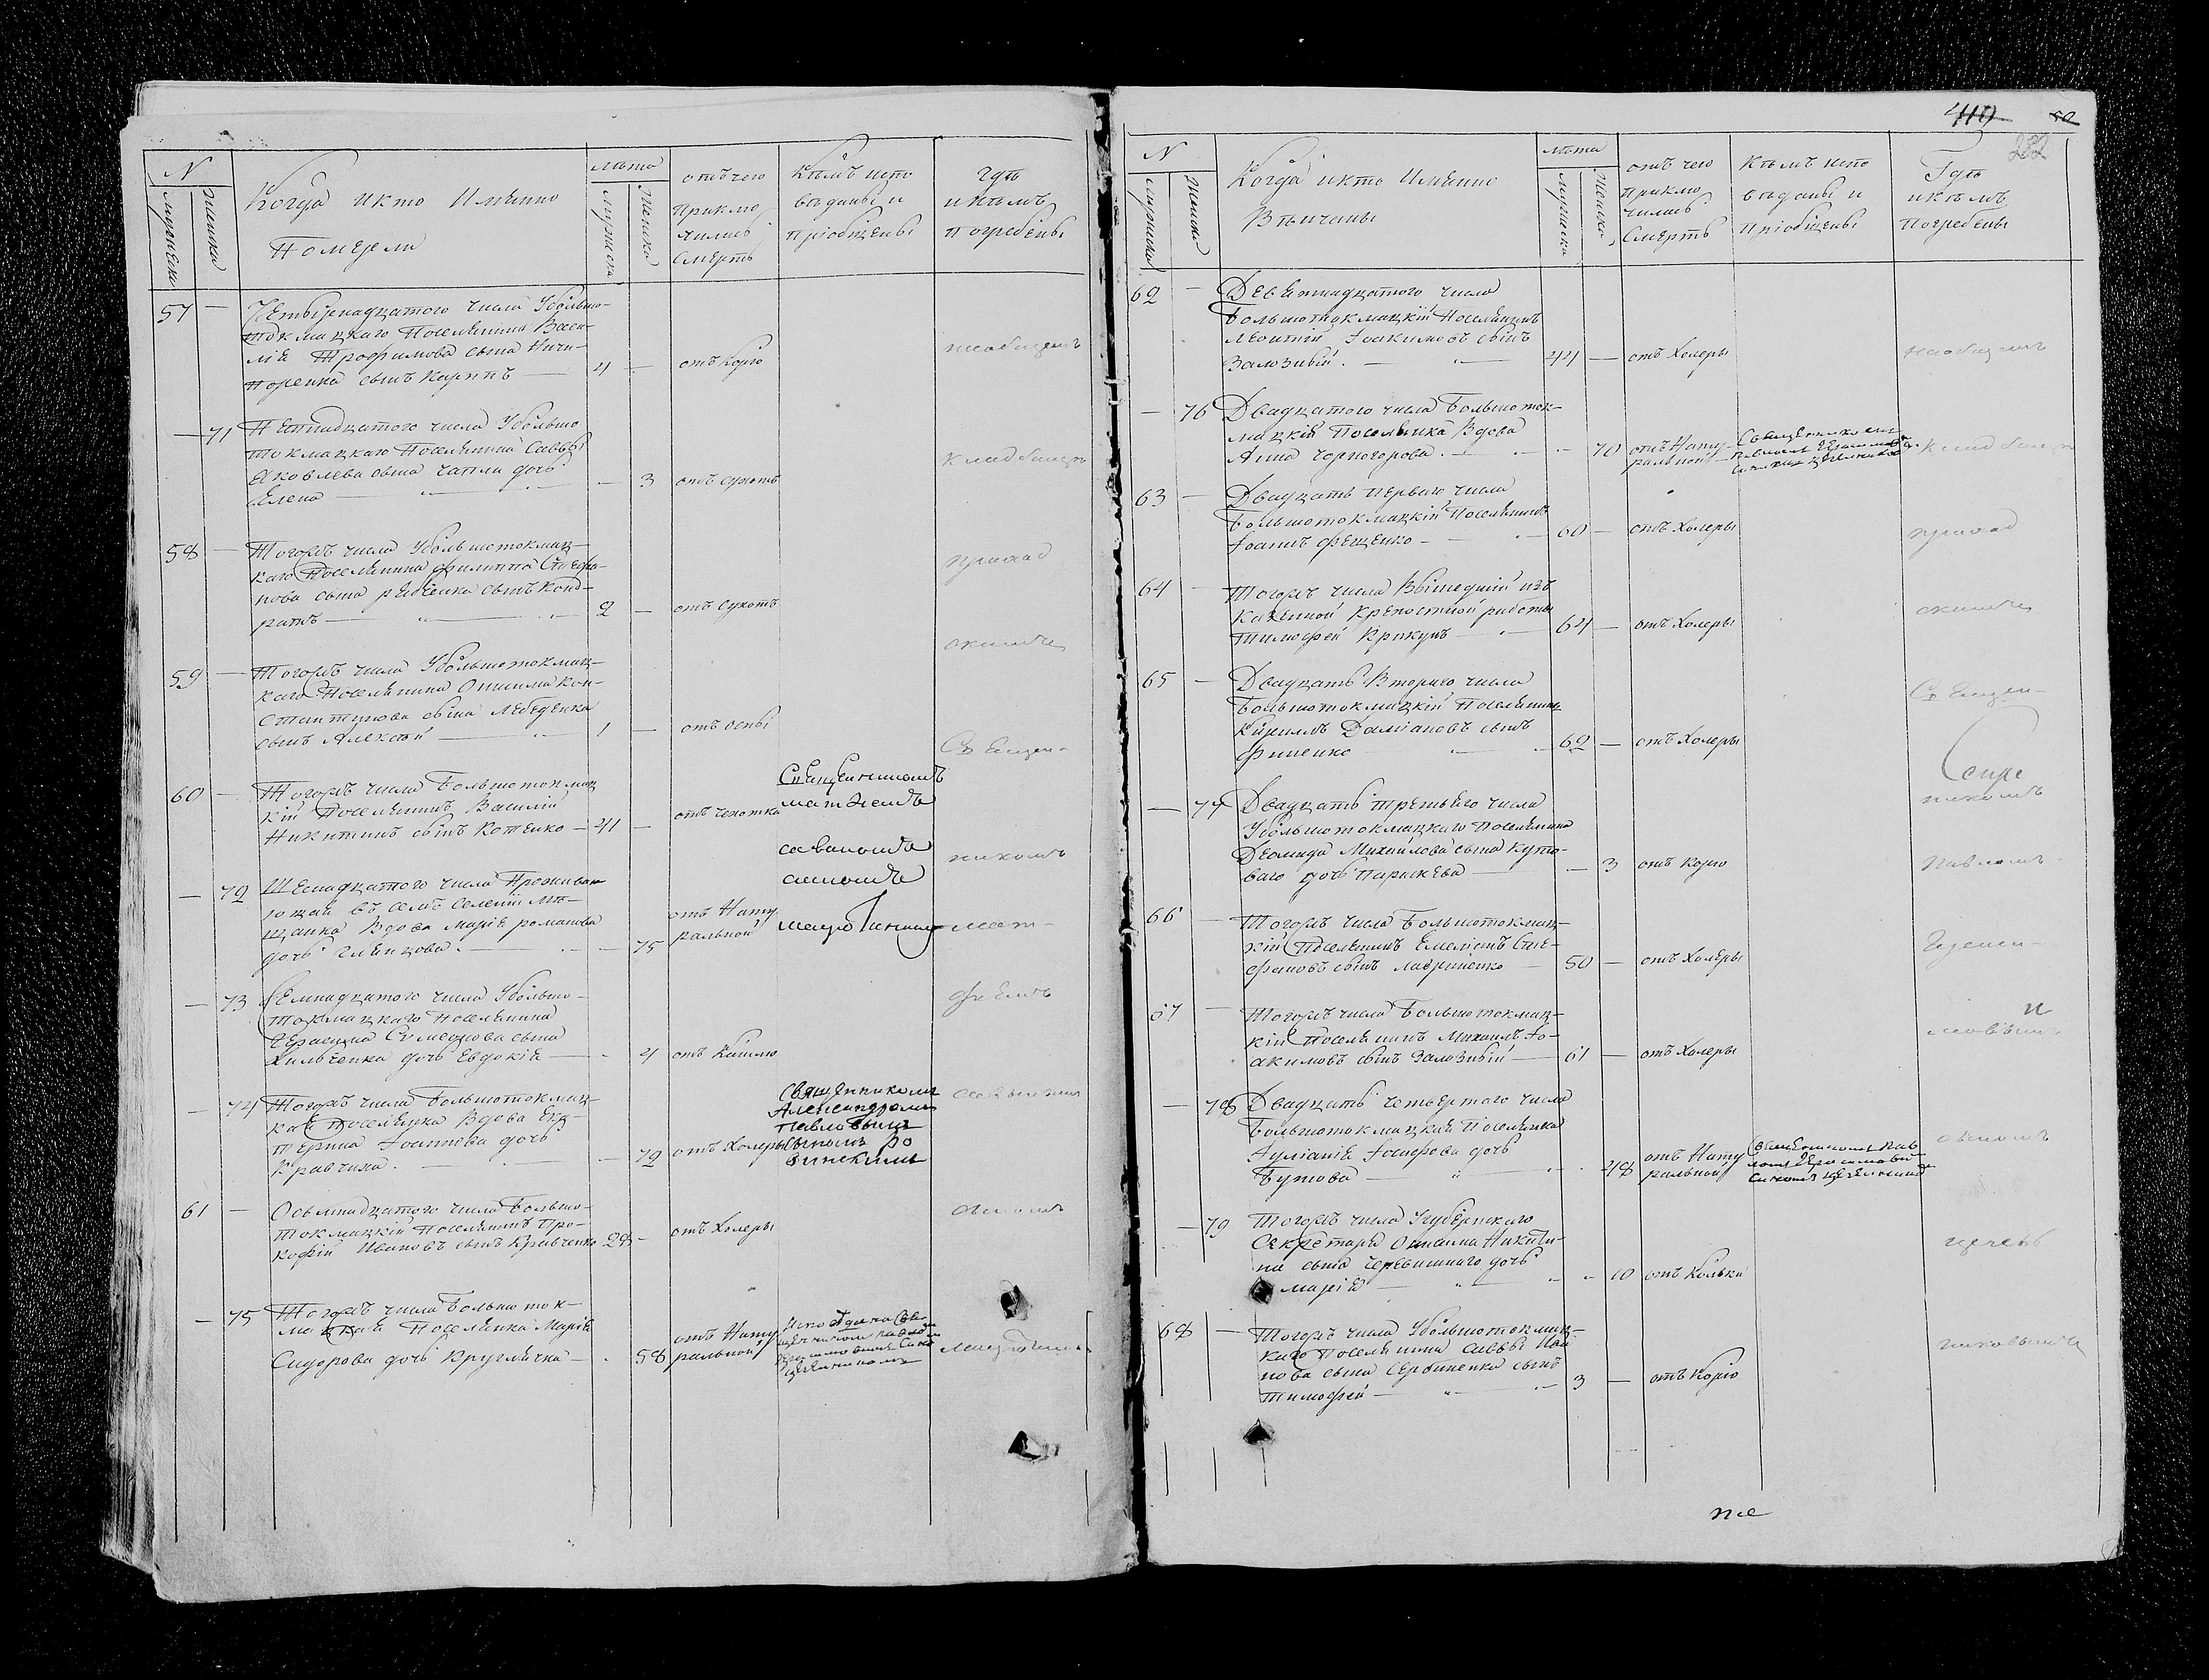 N
мужеска
женска
Когда и кто имянно
Померли
лѣта
мужеска
женска
отъ чего
приклю
чилась
смерть
Кѣмъ испо
вѣданы и
пріобщены
гдѣ
и кѣмъ
погребены
57 — Четырнадцатого числа Убольшо-
токмацкаго Поселянина Васи-
лія Трофимова сына Ничи-
поренка сынъ Карпъ — 4 — отъ Корю
на общемъ
— 71 Пятнадцатого числа Убольшо
токмацкаго Поселянина Саввы
Яковлева сына Чапли дочь
Елена — 3 отъ сухотъ
кладбищѣ
58 — Тогожъ числа Убольшетокмац-
каго Поселянина Филиппа Стефа-
нова сына рябченка сынъ Конд-
ратъ — 2 — отъ сухотъ
приход
59 — Тогожъ числа Убольшотокмац-
каго Поселянина Онисима Кон-
стантинова сына Лебеденка
сынъ Алексѣй — 1 — отъ оспы
скимъ
60 — Тогожъ числа Большотокмац
кій Поселянинъ Василій
Никитинъ сынъ Котенко — 41 — отъ чехотки
Священникомъ
матѳеемъ
савиномъ
Священ-
никомъ
— 72 Шеснадцатого числа Прожива
ющая въ семъ селеніи мѣ-
щанка Вдова марія романова
дочь Глянцова — 75 отъ Нату
ральной
мат-
ѳеемъ
— 73 Семнадцатого числа Убольшо-
токмацкаго Поселянина
Герасима Симеонова сына
Хильченка дочь Евдокія — 4 отъ Кашлю
— 74 Тогожъ числа Большотокмац-
кая Поселянка Вдова Ека-
терина Іоаннова дочь
Кравчина. — 72 отъ Холеры
Священникомъ
Александромъ
Павловымъ
сыномъ Ро
винскимъ
савинымъ
61 — Осьмнадцатого числа Большо-
токмацкій Поселянинъ Про-
кофій Ивановъ сынъ Кравченко 28 — отъ Холеры
сыномъ
— 75 Тогожъ числа Большоток-
мацкая Поселянка Марія
Сидорова дочь Кругличка — 58 отъ Нату
ральной
410
50
232
N
мужеска
женска
Когда и кто имянно
Вѣнчаны
лѣта
мужеска
женска
отъ чего
приклю
чилась
смерть
Кѣмъ испо
вѣданы и
пріобщены
Гдѣ
и кѣмъ
погребены
62 — Девятнадцатого числа
Большотокмацкій Поселянинъ
Леонтій Іоакимовъ сынъ
Залозный. — 44 — отъ Холеры
на общемъ
— 76 Двадцатого числа Большоток-
мацкія Поселянка Вдова
Анна Чорногорова. — 70 отъ Нату-
ральной
Священникомъ
кладбищѣ
63 — Двадцать перваго числа
Большотокмацкій Поселянинъ
Іоаннъ Фещенко — 60 — отъ Холеры
приход
64 — Тогожъ числа Вышедшій изъ
Казенной Крепостной работы
Тимофей Крикунъ — 64 — отъ Холеры
скимъ
65 — Двадцать Втораго числа
Большотокмацкій Поселянинъ
Кириллъ Даміановъ сынъ
Фименко — 62 — отъ Холеры
Священ-
никомъ
— 77 Двадцать третьяго числа
Убольшотокмацкаго Поселянина
Деомида Михайлова сына Куто-
ваго дочь Параскева — 3 отъ Корю
Павломъ
66 — Тогожъ числа Большотокмац-
кій Поселянинъ Емеліянъ Сте-
фановъ сынъ Лавриненко — 50 — отъ Холеры
67 — Тогожъ числа Большотокмац-
кій Поселянинъ Михаилъ Іо-
акимовъ сынъ Залозный — 61 — отъ Холеры
— 78 Двадцать четвертого числа
Большотокмацкая Поселянка
Іуліанія Іосифова дочь
Бутова — 48 отъ Нату
ральной
сыномъ
— 79 Тогожъ числа Угубернскаго
Секретаря Онисима Никити-
на сына Черевишнаго дочь
марія — 10 отъ Колька
68 — Тогожъ числа Убольшотокмац-
каго Поселянина Саввы Ива
нова сына Сербиненка сынъ
Тимофей — 3 — отъ Корю